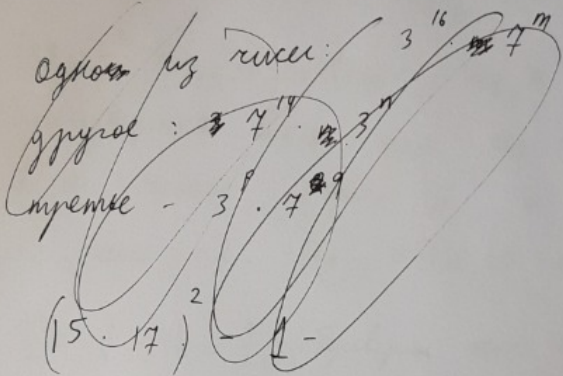 одно из чисел: 3^16 · 7^m
другое: 7^14 · 3^n
третье - 3^p · 7^q
(15 · 17)^2 - 1 -